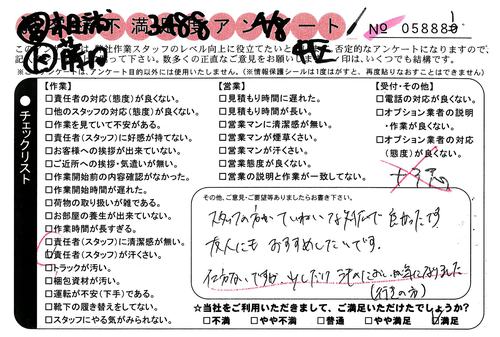 不満足度アンケート
3488
4/8
№ 058880
1
作業スタッフのレベル向上に役立てたいと
否定的なアンケートになりますので、
記入 下さい。数多くの正直なご意見をお願いします
印は、いくつでも結構です。
※このアンケートは、アンケート目的以外には使用いたしません。(※情報保護シールは1度はがすと、再度貼りなおすことはできません)
●チェックリスト
【作業】
□責任者の対応(態度)が良くない。
□他のスタッフの対応(態度)が良くない。
□作業を見ていて不安がある。
□責任者(スタッフ)に好感が持てない。
□お客様への挨拶が出来ていない。
□ご近所への挨拶・気遣いが無い。
□作業開始前の内容確認がなかった。
□作業開始時間が遅れた。
□荷物の取り扱いが雑である。
□お部屋の養生が出来ていない。
□作業時間が長すぎる。
□責任者(スタッフ)に清潔感が無い。
□責任者(スタッフ)が汗くさい。
□トラックが汚い。
□梱包資材が汚い。
□運転が不安(下手)である。
□靴下の履き替えをしてない。
□スタッフにやる気がみられない。
【営業】
□見積もり時間に遅れた。
□見積もり時間が長い。
□営業マンに清潔感が無い。
□営業マンが煙草くさい。
□営業マンが汗くさい。
□営業態度が良くない。
□営業の説明と作業が一致してない。
【受付・その他】
□電話の対応が良くない。
□オプション業者の説明
・作業が良くない。
□オプション業者の対応
(態度)が良くない。
その他、ご意見・ご要望等ありましたらお書き下さい。
スタッフの方がていねいな対応で良かったです
友人にもおすすめしたいです。
仕方ないですが、少しだけ汗のにおいが気になりました
(行きの方)
☆当社をご利用いただきまして、ご満足いただけたでしょうか?
□不満 □やや不満 □普通 □やや満足 ☑満足